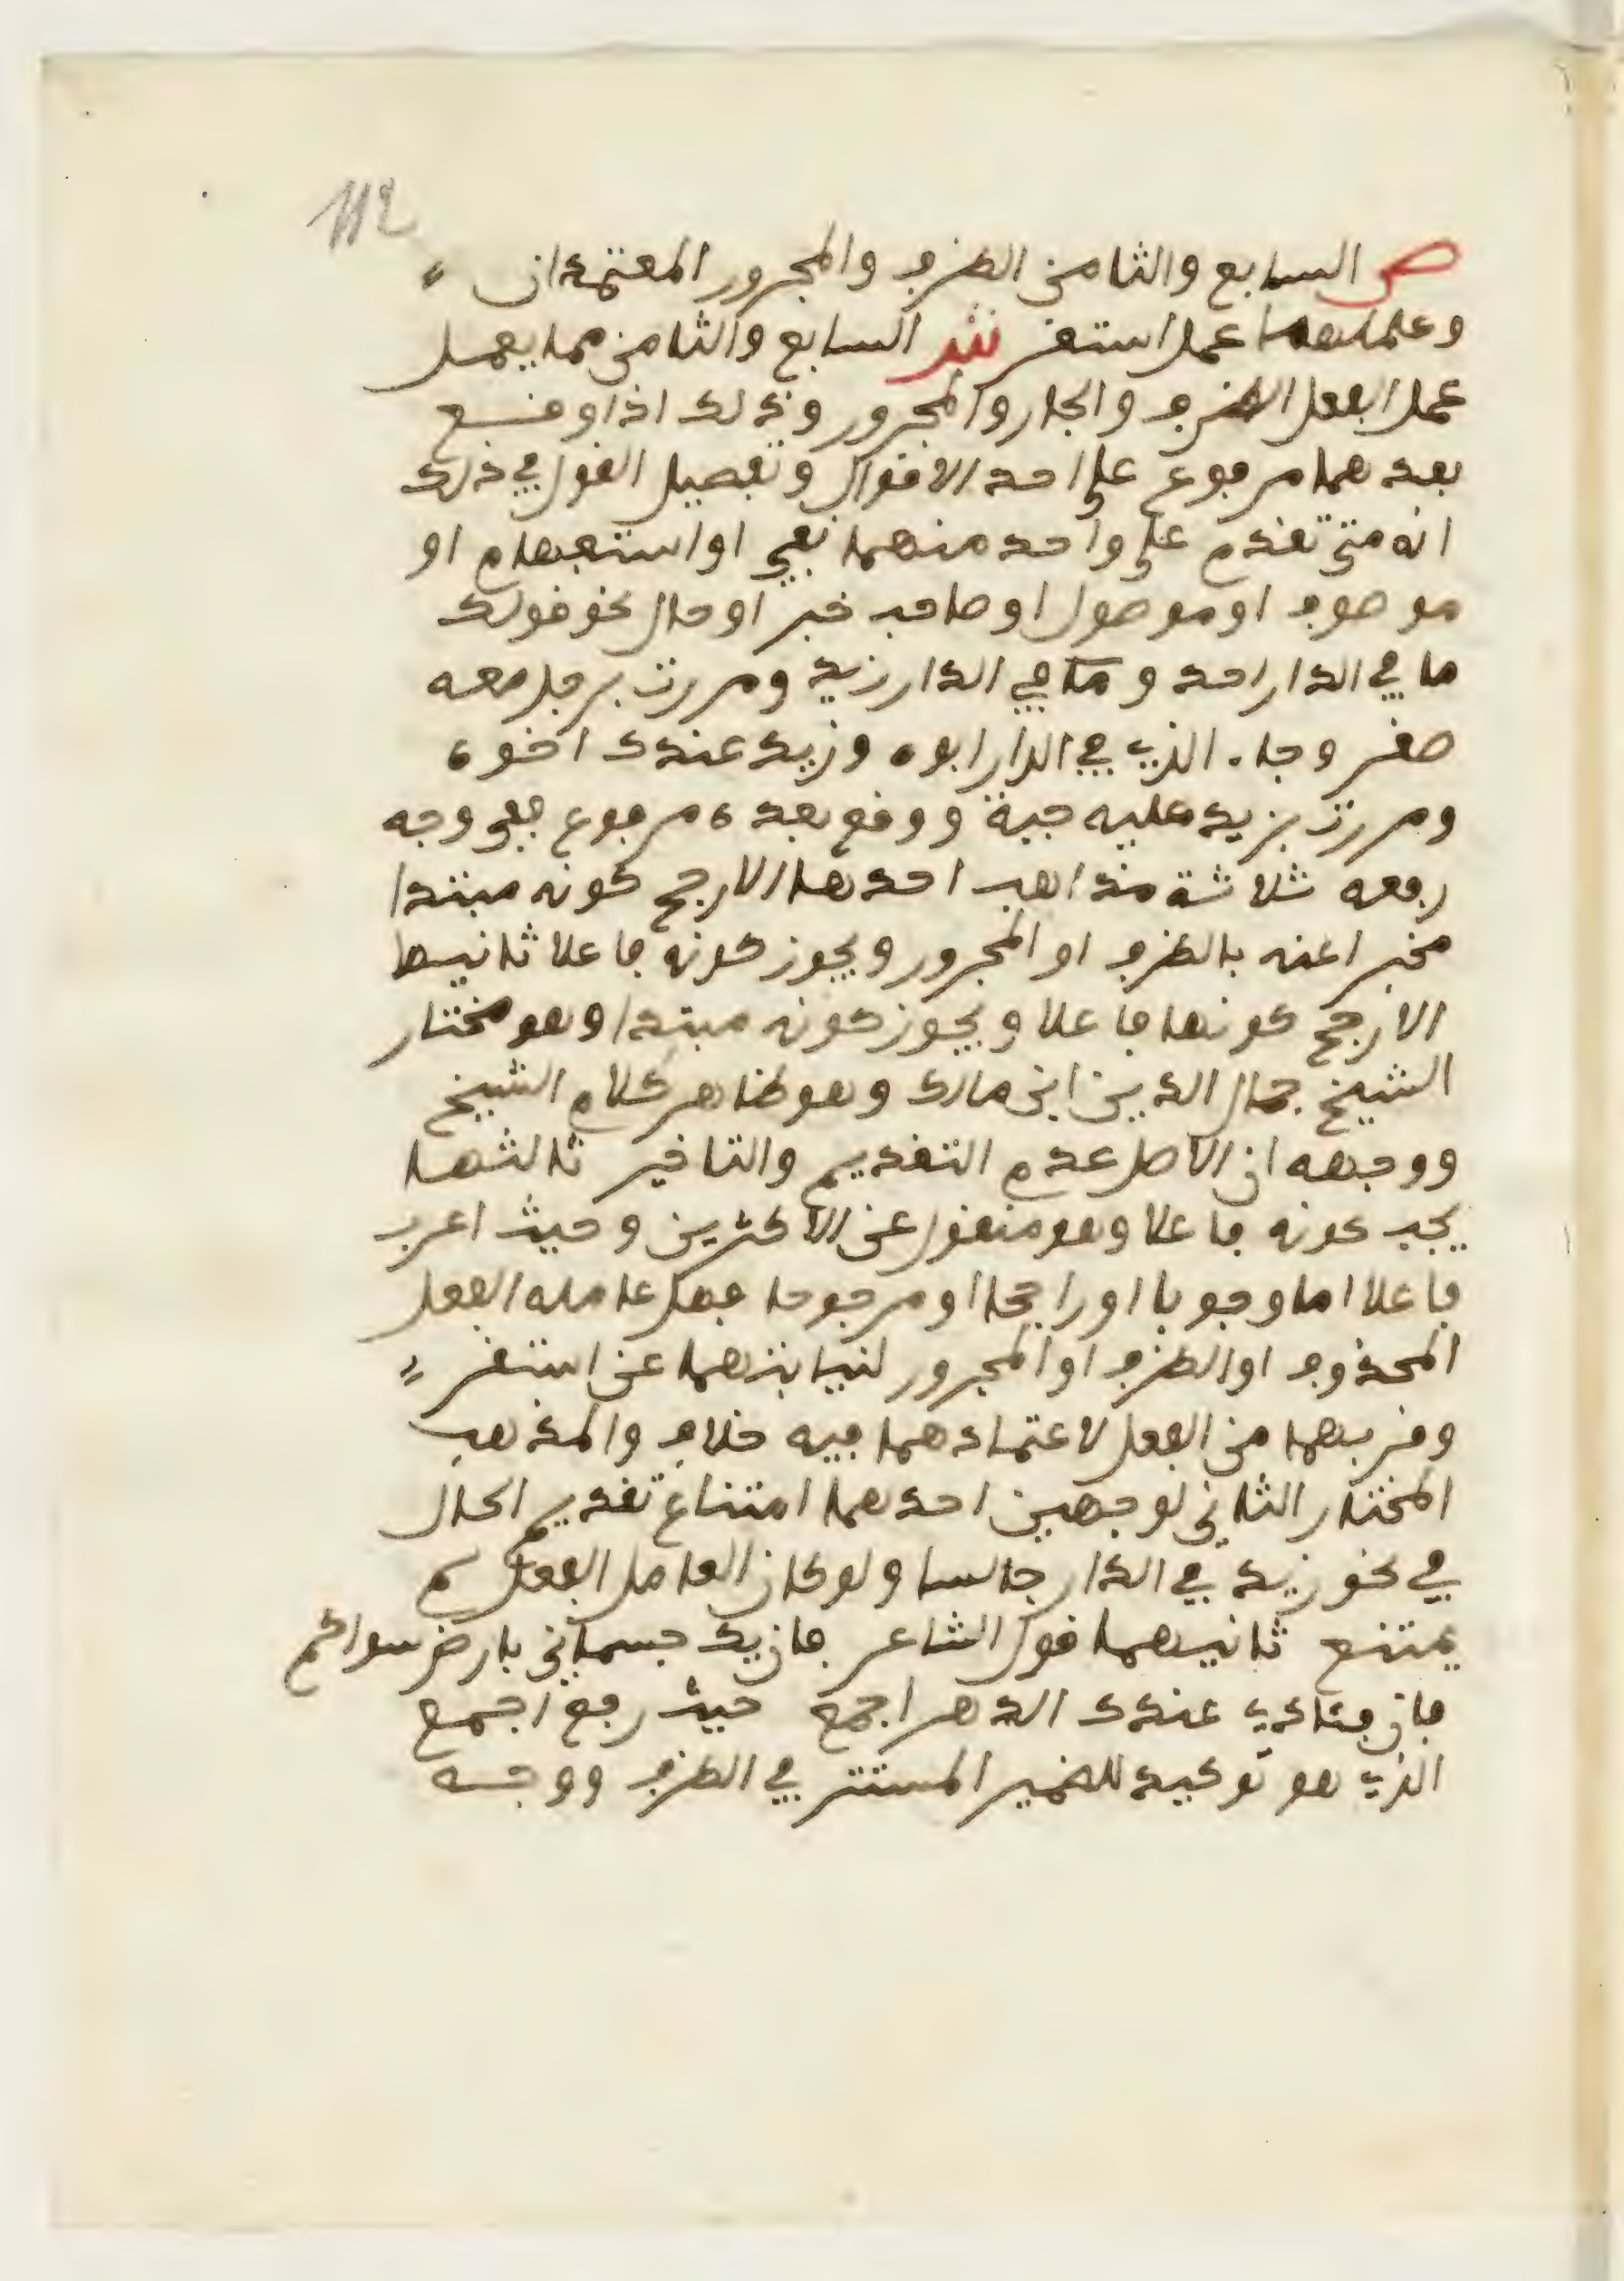 112
ص السابع والثامن الظرف والمجرور المعتمدان
وعملهما عمل استقر ش السابع والثامن مما يعمل
عمل الفعل الظرف والجار والمجرور وذلك اذا وقع
بعدهما مرفوع على احد الاقوال وتفصيل القول في ذلك
انه متى تقدم على واحد منهما نفي او استفهام او
موصوف او موصول او صاحب خبر او حال نحو قولك
ما في الدار احد و في الدار زيد ومررت برجل معه
صقر وجاء الذي في الدار ابوه وزيد عندك اخوه
ومررت بزيد عليه جبة ووقع بعده مرفوع ففي وجه
رفعه ثلاثة مذاهب احدها الارجح كونه مبتدا
مخبرا عنه بالظرف او المجرور ويجوز كونه فاعلا ثانيها
الارجح كونها فاعلا ويجوز كونه مبتدا وهو مختار
الشيخ جمال الدين ابن مالك وهو ظاهر كلام الشيخ
ووجهه ان الاصل عدم التقديم والتاخير ثالثها
يجب كونه فاعلا وهو منقول عن الاكثرين وحيث اعرب
فاعلا اما وجوبا او راجحا او مرجوحا فهل عامله الفعل
المحذوف او الظرف او المجرور لنيابتهما عن استقر
وقربهما من الفعل لاعتمادهما فيه خلاف والمذهب
المختار الثاني لوجهين احدهما امتناع تقديم الحال
في نحو زيد في الدار جالسا ولو كان العامل الفعل لم
يمتنع ثانيهما قول الشاعر فان يك جسماني بارض سوائكم
فان فؤادي عندك الدهر اجمع حيث رفع اجمع
الذي هو توكيد للضمير المستتر في الظرف ووجه